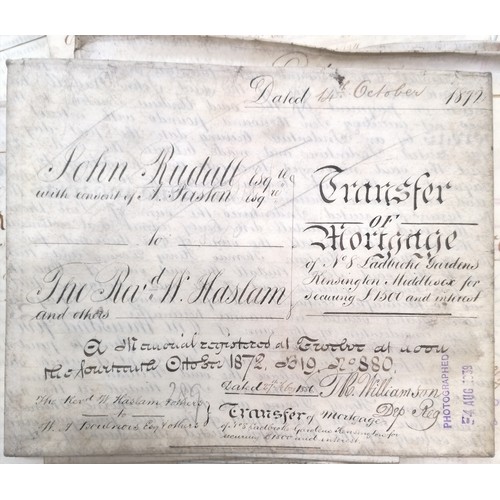 Dated 14th October 1872
John Rudall Esqre
with consent of J. Friston Esqre
to
The Revd. W. Haslam
and others
Transfer
OF
Mortgage
of No 8 Ladbroke Gardens
Kensington Middlesex for
securing £1500 and interest
A Memorial registered at Twelve at noon
the fourteenth October 1872, B19, No 880.
Dated 1st
T R Williamson
Dep Reg
The Revd W. Haslam & others
to
W. A. Esq & others
Transfer of Mortgage
of No 8 Ladbroke Gardens Kensington for
securing £1500 and interest.
PHOTOGRAPHED
24 AUG 1939